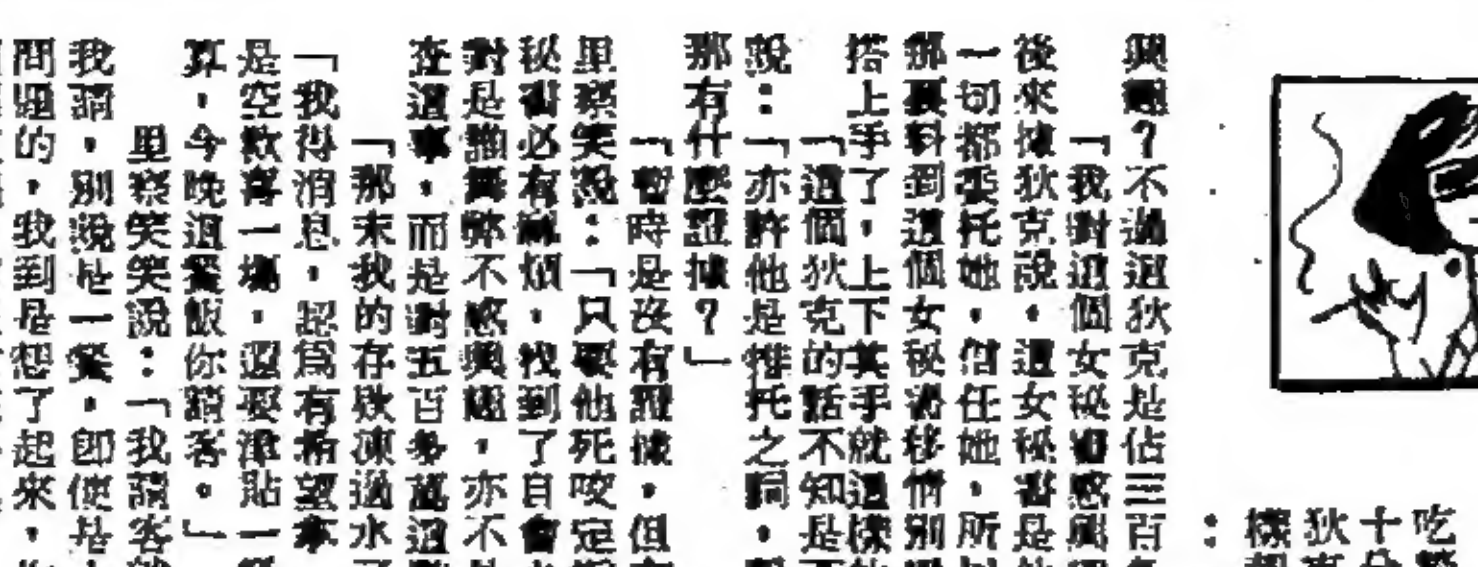 吃
十分
狄克
樣
：
興趣？不過這狄克是佔三百
「我對這個女秘書感興
後來據狄克說，這女秘書是他
一切都委托她，信任她，所以
那裏料到這個女秘書移情別
搭上手了，上下其手就這樣
「這個狄克的話不知是
說：「亦許他是推托之詞，
那有什麼證據？」
「暫時是沒有證據，但
里察笑說：「只要他死咬定
秘書必有麻煩，找到了自會
對是誰舞弊不感興趣，亦不
在這事，而是對五百多萬這
「那末我的存款凍過水
「我得消息，認爲有希望拿
是空歡喜一場，還要津貼一
算，今晚這餐飯你請客。」
里察笑笑說：「我請客
我請，別說是一餐，即使是
問題的，我到是想了起來，